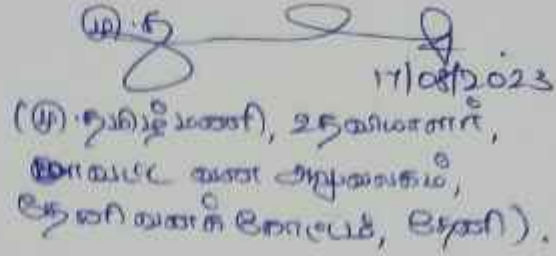 மு.த
17/08/2023
(மு.தமிழ்மணி, உதவியாளர்,
மாவட்ட வன அலுவலகம்,
தேனி வனக் கோட்டம், தேனி).